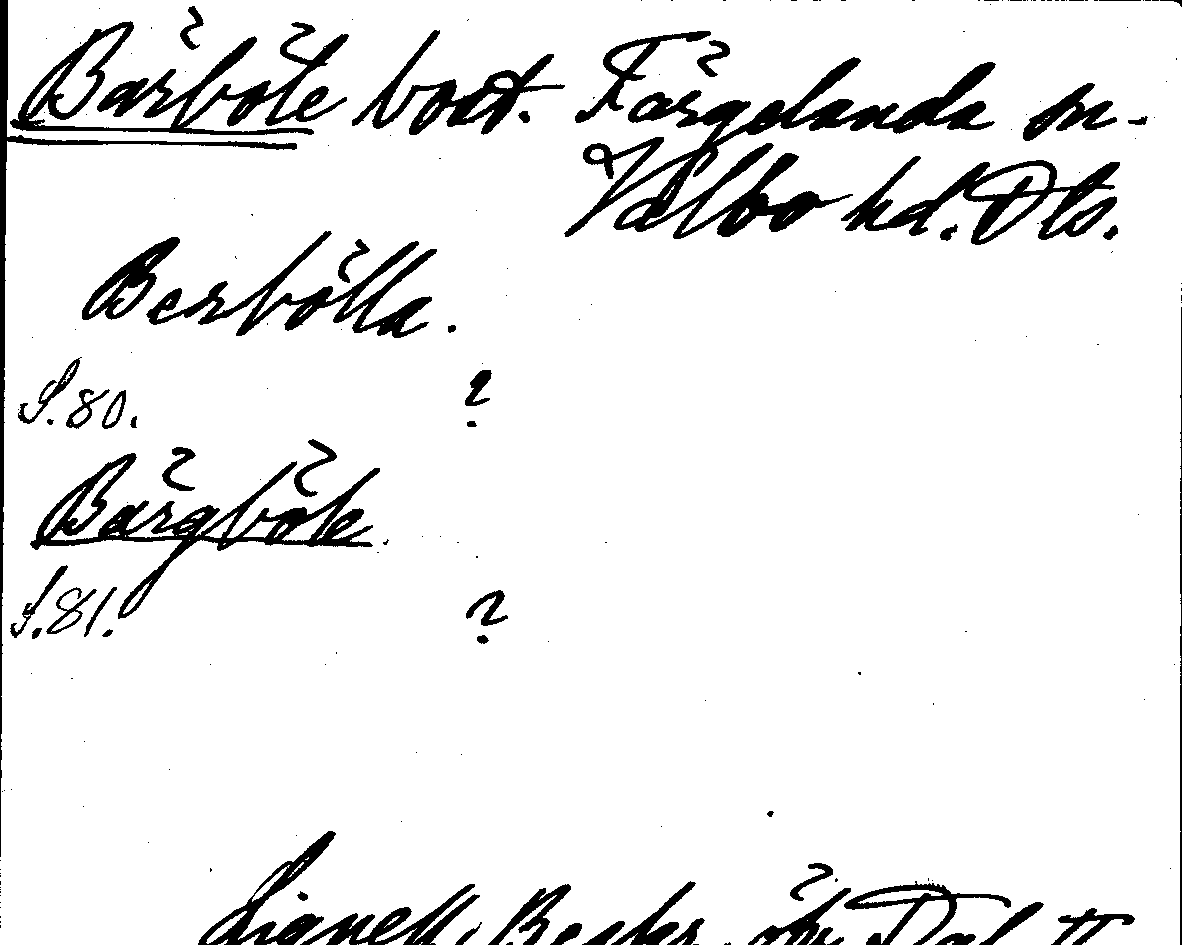 Bärböle bost. Färgelanda sn.
Valbo hd. Dls.
Berbölla.
S. 80. ?
Bärgböle.
S. 81. ?
Lignell, Beskr. öfv. Dal II